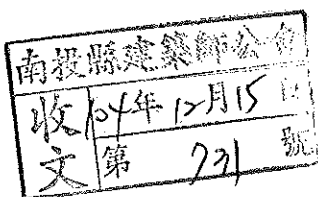 南投縣建築師公會
收文 104年12月15日
第 731 號